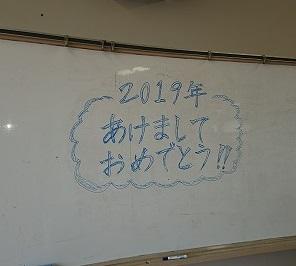 2019年
あけまして
おめでとう!!